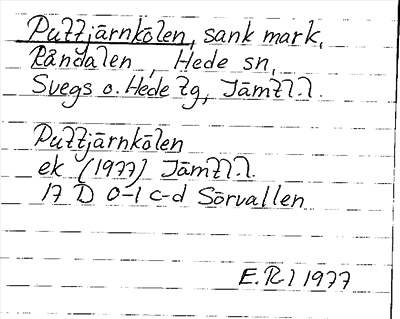 Puttjärnkölen, sank mark,
Råndalen, Hede sn,
Svegs o. Hede tg, Jämtl.l.
Puttjärnkölen
ek (1977) Jämtl.l.
17 D 0-1 c-d Sörvallen
E. R) 1977